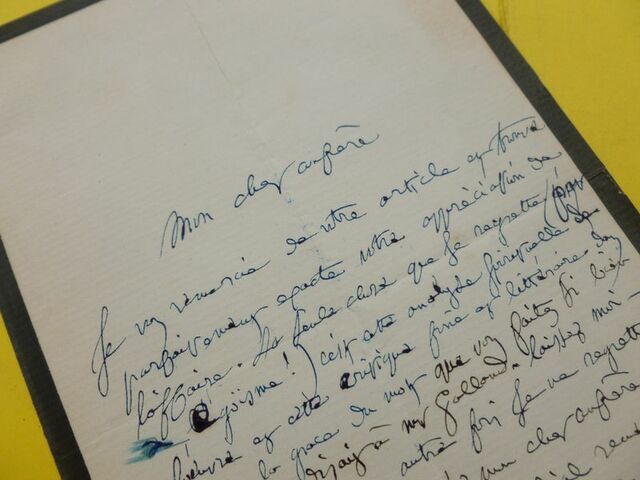 Mon cher confrère
Je vous remercie de votre article et trouve
parfaitement exacte votre appréciation de
l'affaire. La seule chose que je regrette (par
égoïsme!) c'est cette analyse
et cette critique fine et littéraire
la grace du mot que vous faites si bien
laissez moi
autre fois Je ne regrette
mon cher confrère